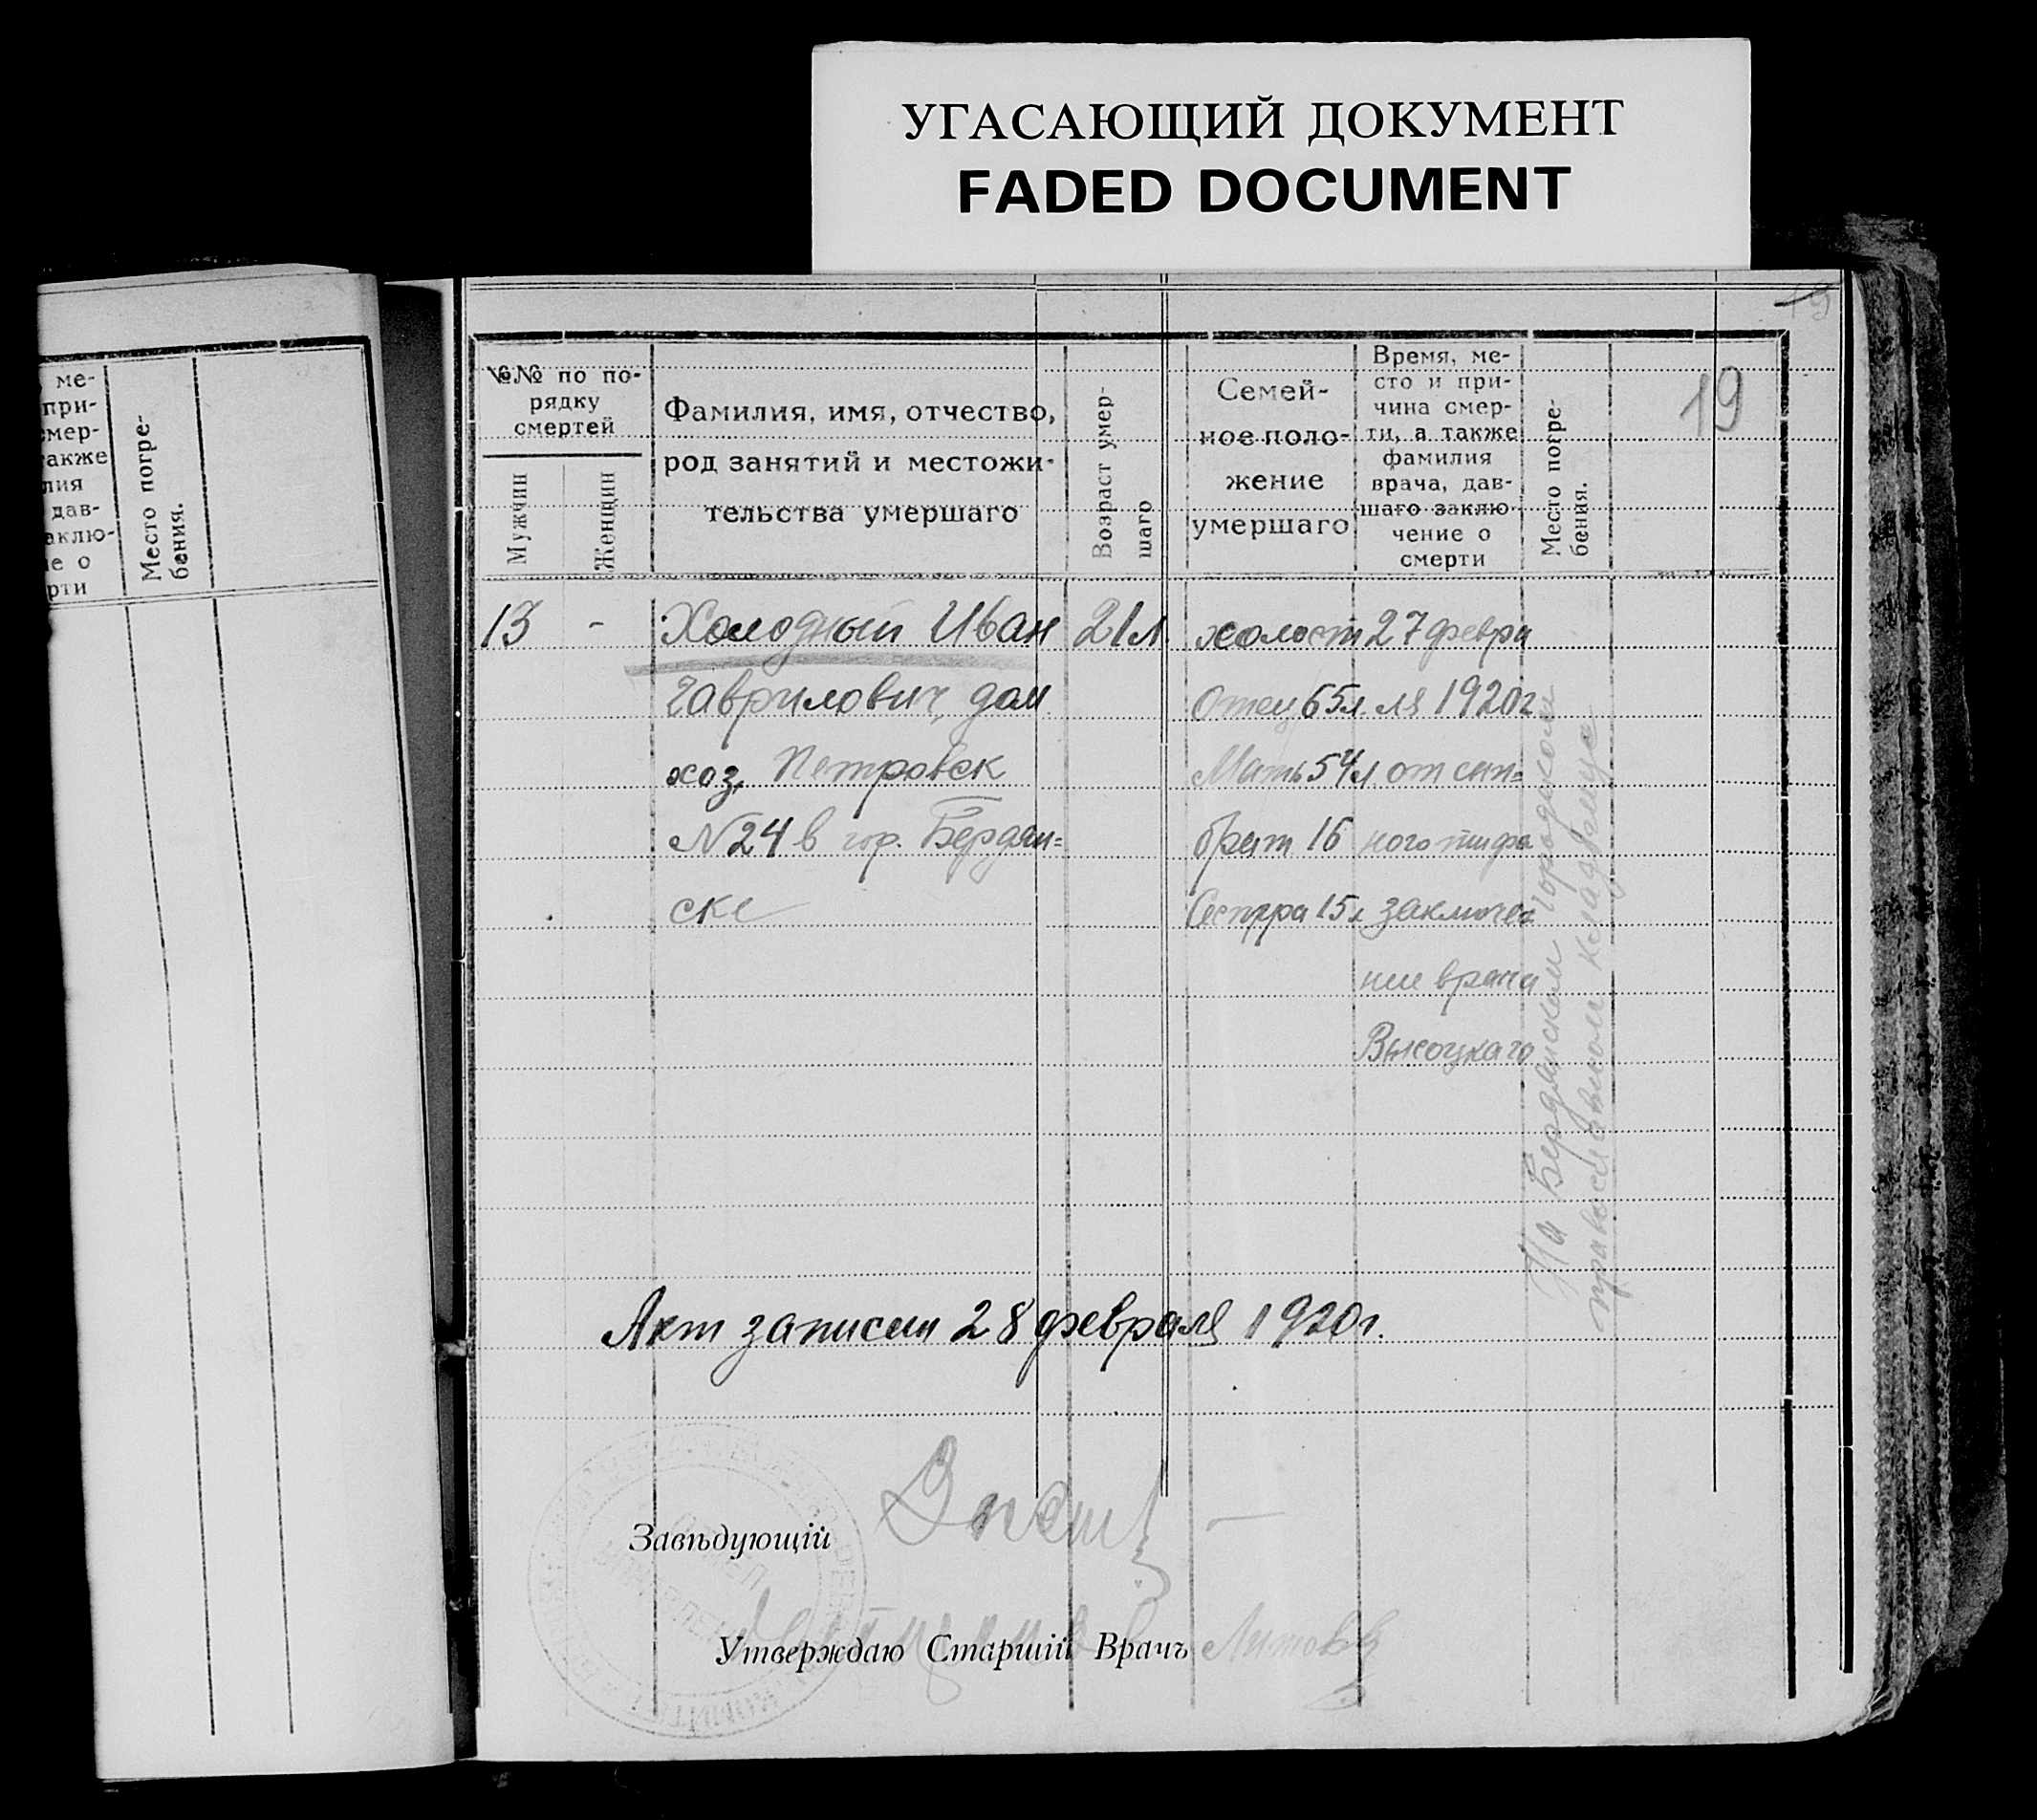 УГАСАЮЩИЙ ДОКУМЕНТ
FADED DOCUMENT
19
19
ме-
при-
смер-
также
лия
дав-
аклю-
ие о
рти
Место погре-
бения.
№№ по по-
рядку
смертей
Мужчин
Женщин
Фамилия, имя, отчество,
род занятий и местожи-
тельства умершаго
Возраст умер-
шаго
Семей-
ное поло-
жение
умершаго
Время, ме-
сто и при-
чина смер-
ти, а также
фамилия
врача, дав-
шаго заклю-
чение о
смерти
Место погре-
бения.
13 - Холодный Иван 21 л. холост 27 февра
Гаврилович, дом отец 65 л. ля 1920 г
хоз, Петровск Мать 54 л. от сып=
N 24 в гор. Бердян= брат 16 ного тифа
ске Сестра 15 л заключе
ние врача
Высоцкаго
На Бердянском городском
православном кладбище
Акт записан 28 февраля 1920 г.
Завѣдующій
Утверждаю Старшій Врачъ